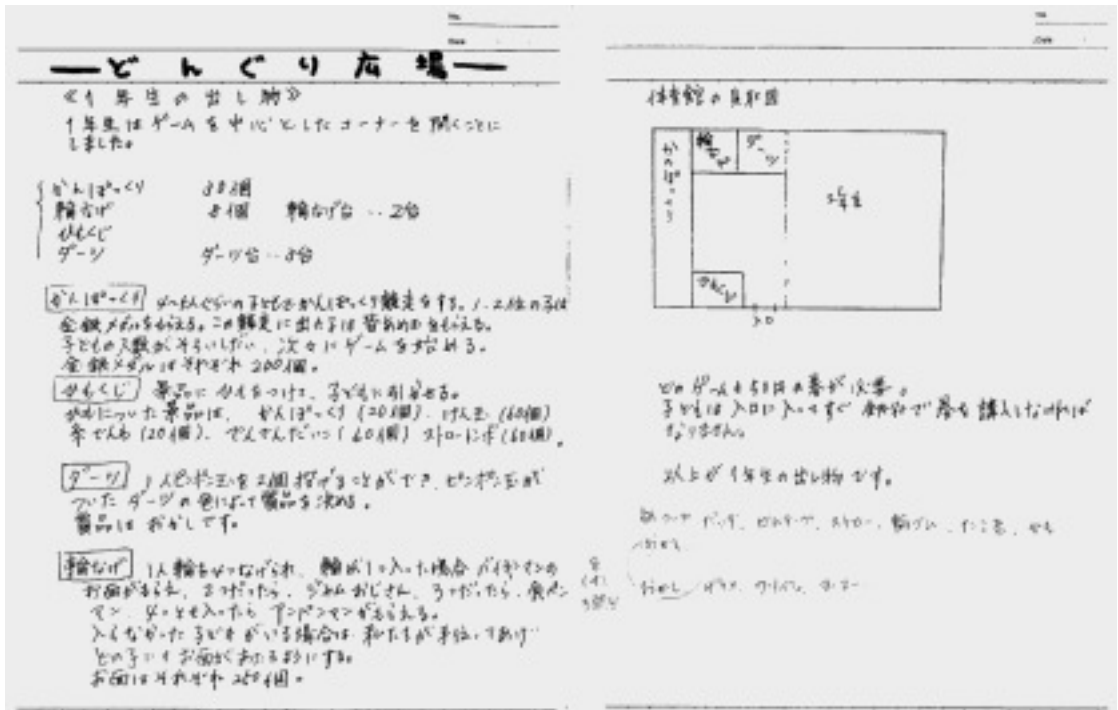 どんぐり広場
≪1年生の出し物≫
1年生はゲームを中心としたコーナーを開くことに
しました。
かんぽっくり
輪なげ 8個 輪なげ台‥2台
ひもくじ
ダーツ ダーツ台‥3台
かんぽっくり ぐらいの子どもでかんぽっくり競走をする。1.2位の子は
金銀メダルをもらえる。この競走に出た子は皆あめをもらえる。
子どもの人数がそろいしだい、次々にゲームを始める。
金銀メダルはそれぞれ200個。
ひもくじ 景品にひもをつけて、子どもに引かせる。
ひもについた景品は、かんぽっくり(20個)、けん玉(60個)
糸でんわ(20個)、でんでんだいこ(60個)ストロートンボ(60個)。
ダーツ 1人ピンポン玉を2個投げることができ、ピンポン玉が
ついたダーツの色によって賞品を決める。
賞品はおかしです。
輪なげ 1人輪を4つなげられ、輪が1つ入った場合バイキンマンの
お面がもらえ、2つだったら、ジャムおじさん、3つだったら、食パン
マン、4つとも入ったらアンパンマンがもらえる。
入らなかった子どもがいる場合は、私たちが手伝ってあげ
どの子にもお面があたるようにする。
お面はそれぞれ250個。
体育館の見取図
かんぽっくり
輪なげ
ダーツ
2年生
ひもくじ
入口
どのゲームも券が必要。
子どもは入口に入ってすぐ で券を購入しなければ
なりません。
以上が1年生の出し物です。
ストロー、輪ゴム、たこ糸、ひも
おかし